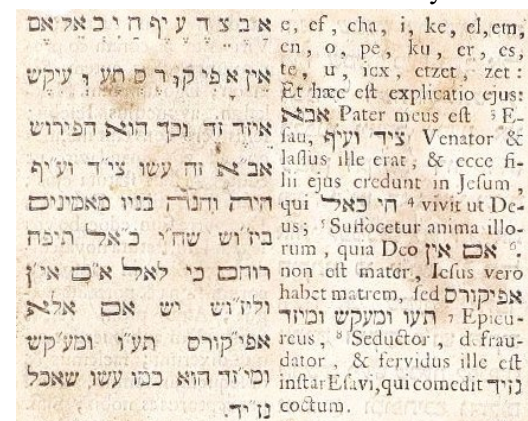 א בּ צ ד עיף ח י כ אל אם
אין א פי ק ו ר ס תע ו עיקש
איזד זה וכך הוא הפירוש
אב״א זה עשו צי״ד וע״יף
היה והנה בניו מאמינים
ביז״וש שח״י כ״אל תיפח
רוחם כי לאל א״ם אי״ן
וליז״וש יש אם אלא
אפי״קורס תע״ו ומע״קש
ומי״זד הוא כמו עשו שאכל
נז״יד.
e, ef, cha, i, ke, el, em,
en, o, pe, ku, er, es,
te, u, icx, etzet, zet:
Et hæc est explicatio ejus:
אבא Pater meus est ³ E-
sau, ציד ועיף Venator &
lassus ille erat, & ecce fi-
lii ejus credunt in Jesum,
qui חי כאל ⁴ vivit ut De-
us; ⁵ Suffocetur anima illo-
rum, quia Deo אם אין ⁶
non est mater, Iesus vero
habet matrem, sed אפיקורס
תעו ומעקש ומיזד ⁷ Epicu-
reus, ⁸ Seductor, defrau-
dator, & fervidus ille est
instar Esavi, qui comedit נזיד
coctum.